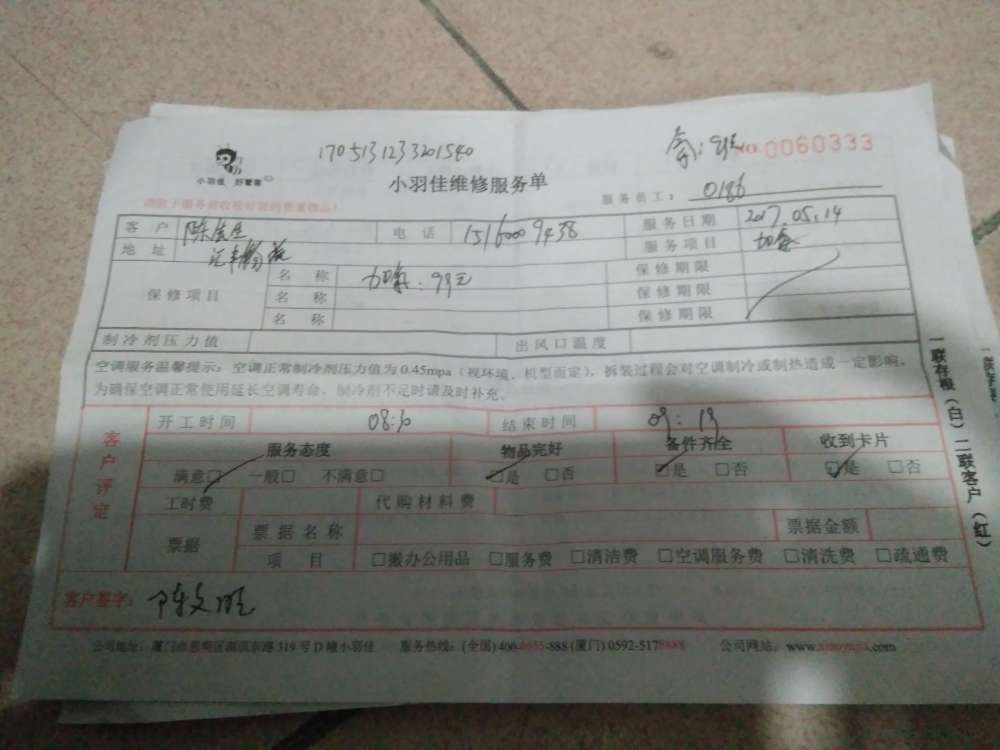 1705131233201540
No.0060333
小羽佳 好管家
小羽佳维修服务单
服务员工: 0186
客户 电话 15160009438 服务日期 2017.05.14
地址 服务项目 加氟
保修项目 名称 加氟:99元 保修期限
名称 保修期限
名称 保修期限
制冷剂压力值 出风口温度
空调服务温馨提示:空调正常制冷剂压力值为0.45mpa(视环境、机型而定),拆装过程会对空调制冷或制热造成一定影响。
为确保空调正常使用延长空调寿命,制冷剂不足时请及时补充。
一联存根(白)二联客户(红)
客户评定
开工时间 08:30 结束时间 09:19
服务态度 物品完好 备件齐全 收到卡片
满意□ 一般□ 不满意□ □是 □否 □是 □否 □是 □否
工时费 代购材料费
票据 票据名称 票据金额
项目 □搬办公用品 □服务费 □清洁费 □空调服务费 □清洗费 □疏通费
客户签字: 陈文旺
公司地址:厦门市思明区湖滨东路319号D幢小羽佳 服务热线:(全国)400-6655-888(厦门)0592-5178888 公司网站:www.xiaoyujia.com